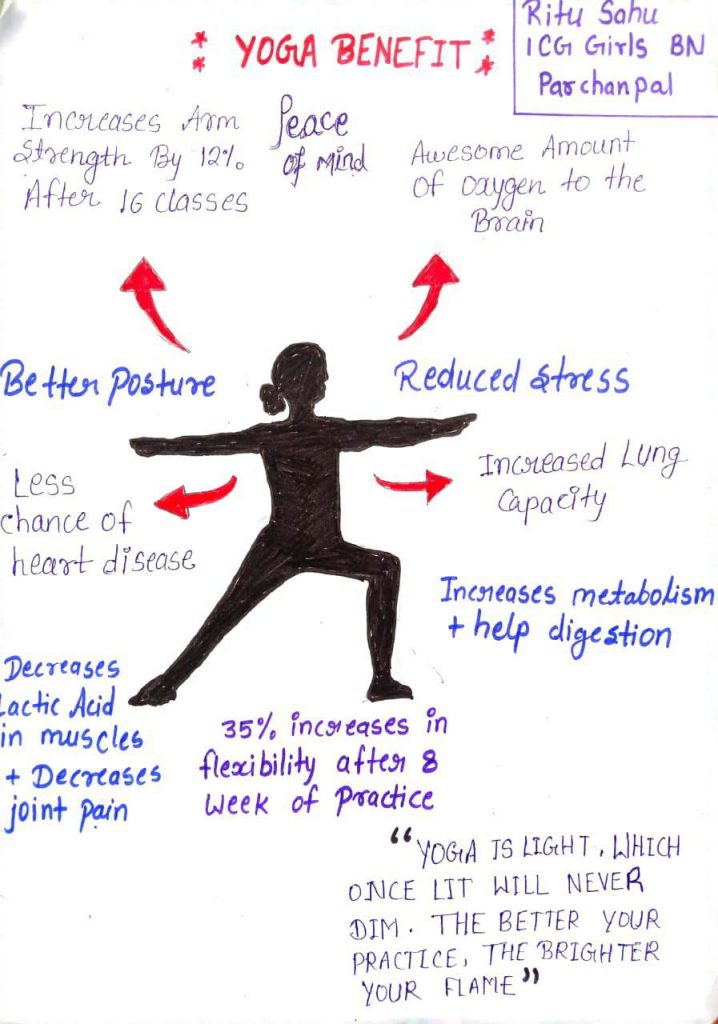 YOGA BENEFIT
Ritu Sahu
1CG Girls BN
Parchanpal
Increases Arm
Strength By 12%
After 16 classes
Peace
of Mind
Awesome Amount
of oxygen to the
Brain
Better Posture
Reduced stress
Less
chance of
heart disease
Increased Lung
Capacity
Increases metabolism
+ help digestion
Decreases
Lactic Acid
in muscles
+ Decreases
joint pain
35% increases in
flexibility after 8
week of Practice
“YOGA IS LIGHT, WHICH
ONCE LIT WILL NEVER
DIM. THE BETTER YOUR
PRACTICE, THE BRIGHTER
YOUR FLAME”